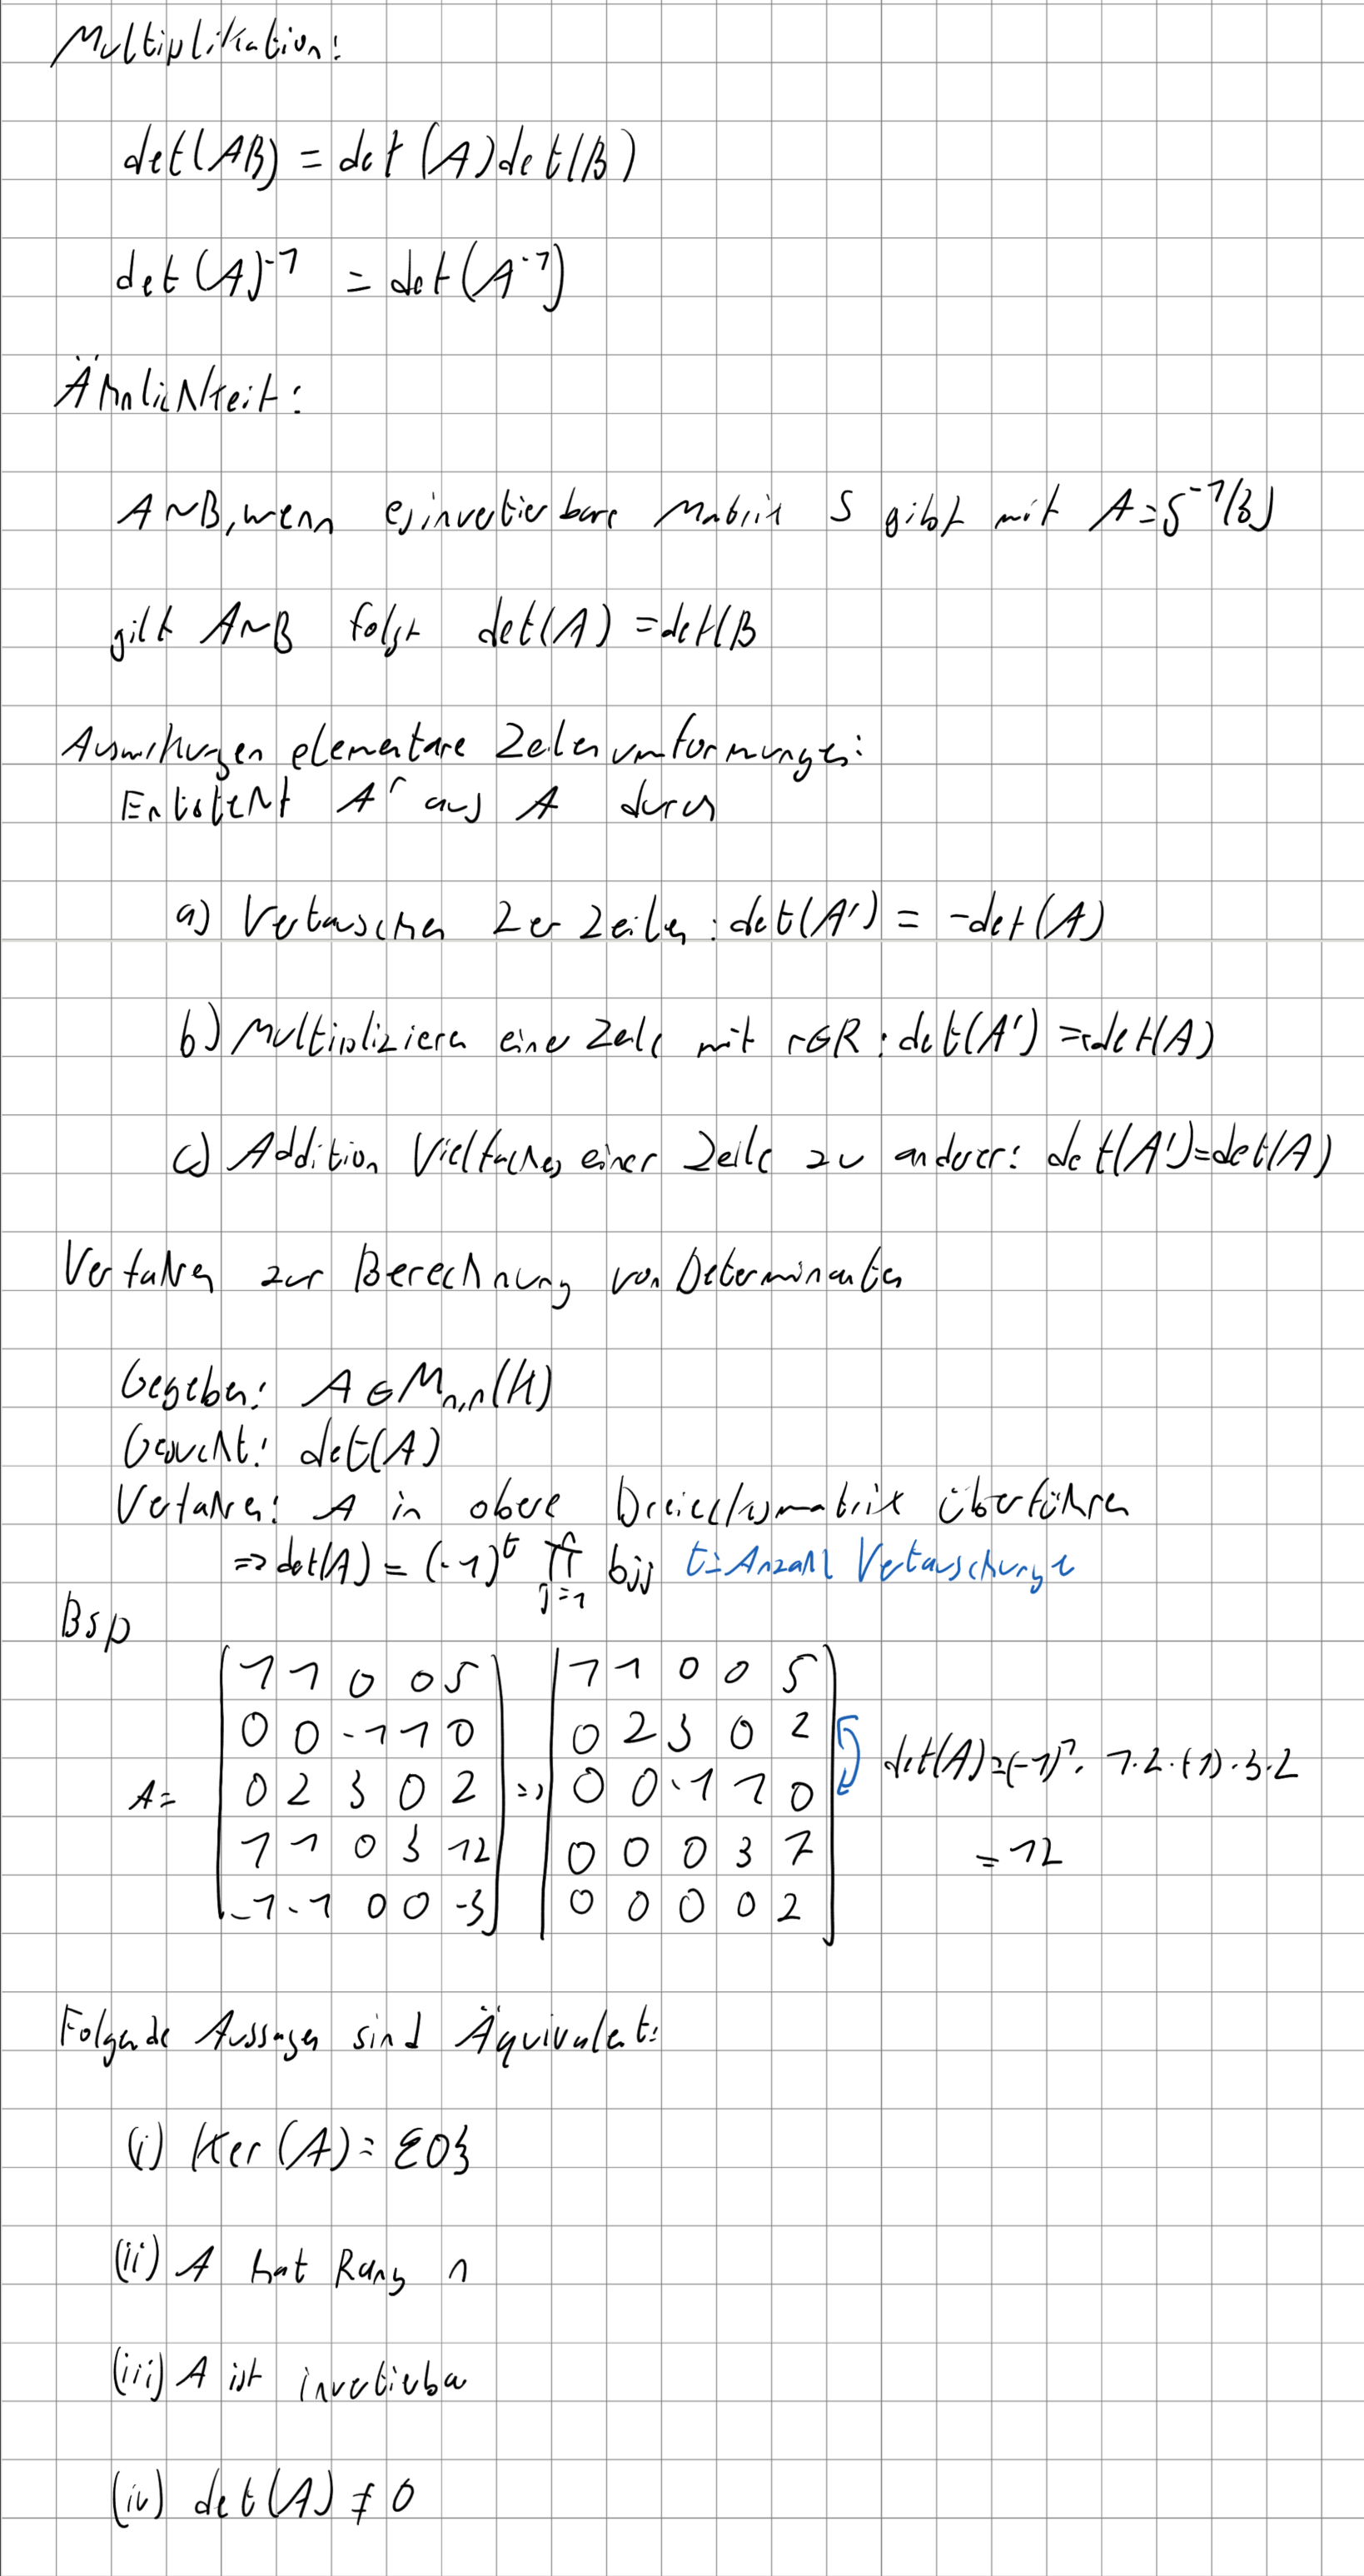 Multiplikation:
det(AB) = det(A)det(B)
det(A)⁻¹ = det(A⁻¹)
Ähnlichkeit:
A~B, wenn es invertierbare Matrix S gibt mit A=S⁻¹(B)
gilt A~B folgt det(A) =det(B
Auswirkungen elementare Zeilenumformungen:
Entsteht A' aus A durch
a) Vertauschen 2er Zeilen: det(A') = -det(A)
b) Multiplizieren einer Zeile mit r∈R: det(A') =rdet(A)
c) Addition Vielfaches einer Zeile zu anderer: det(A')=det(A)
Verfahren zur Berechnung von Determinanten
Gegeben: A∈Mn,n(K)
Gesucht: det(A)
Verfahren: A in obere Dreiecksmatrix überführen
=> det(A) = (-1)^t ∏_{j=1}^{n} bjj t=Anzahl Vertauschunge
Bsp
A= (1 1 0 0 5) => (1 1 0 0 5)
(0 0 -1 1 0) (0 2 3 0 2)
(0 2 3 0 2) (0 0 -1 1 0) det(A)=(-1)¹· 1·2·(-1)·3·2
(1 1 0 3 12) (0 0 0 3 7) = 12
(-1 -1 0 0 -3) (0 0 0 0 2)
Folgende Aussagen sind Äquivalent:
(i) Ker(A)= {0}
(ii) A hat Rang n
(iii) A ist invertierba
(iv) det(A) ≠ 0